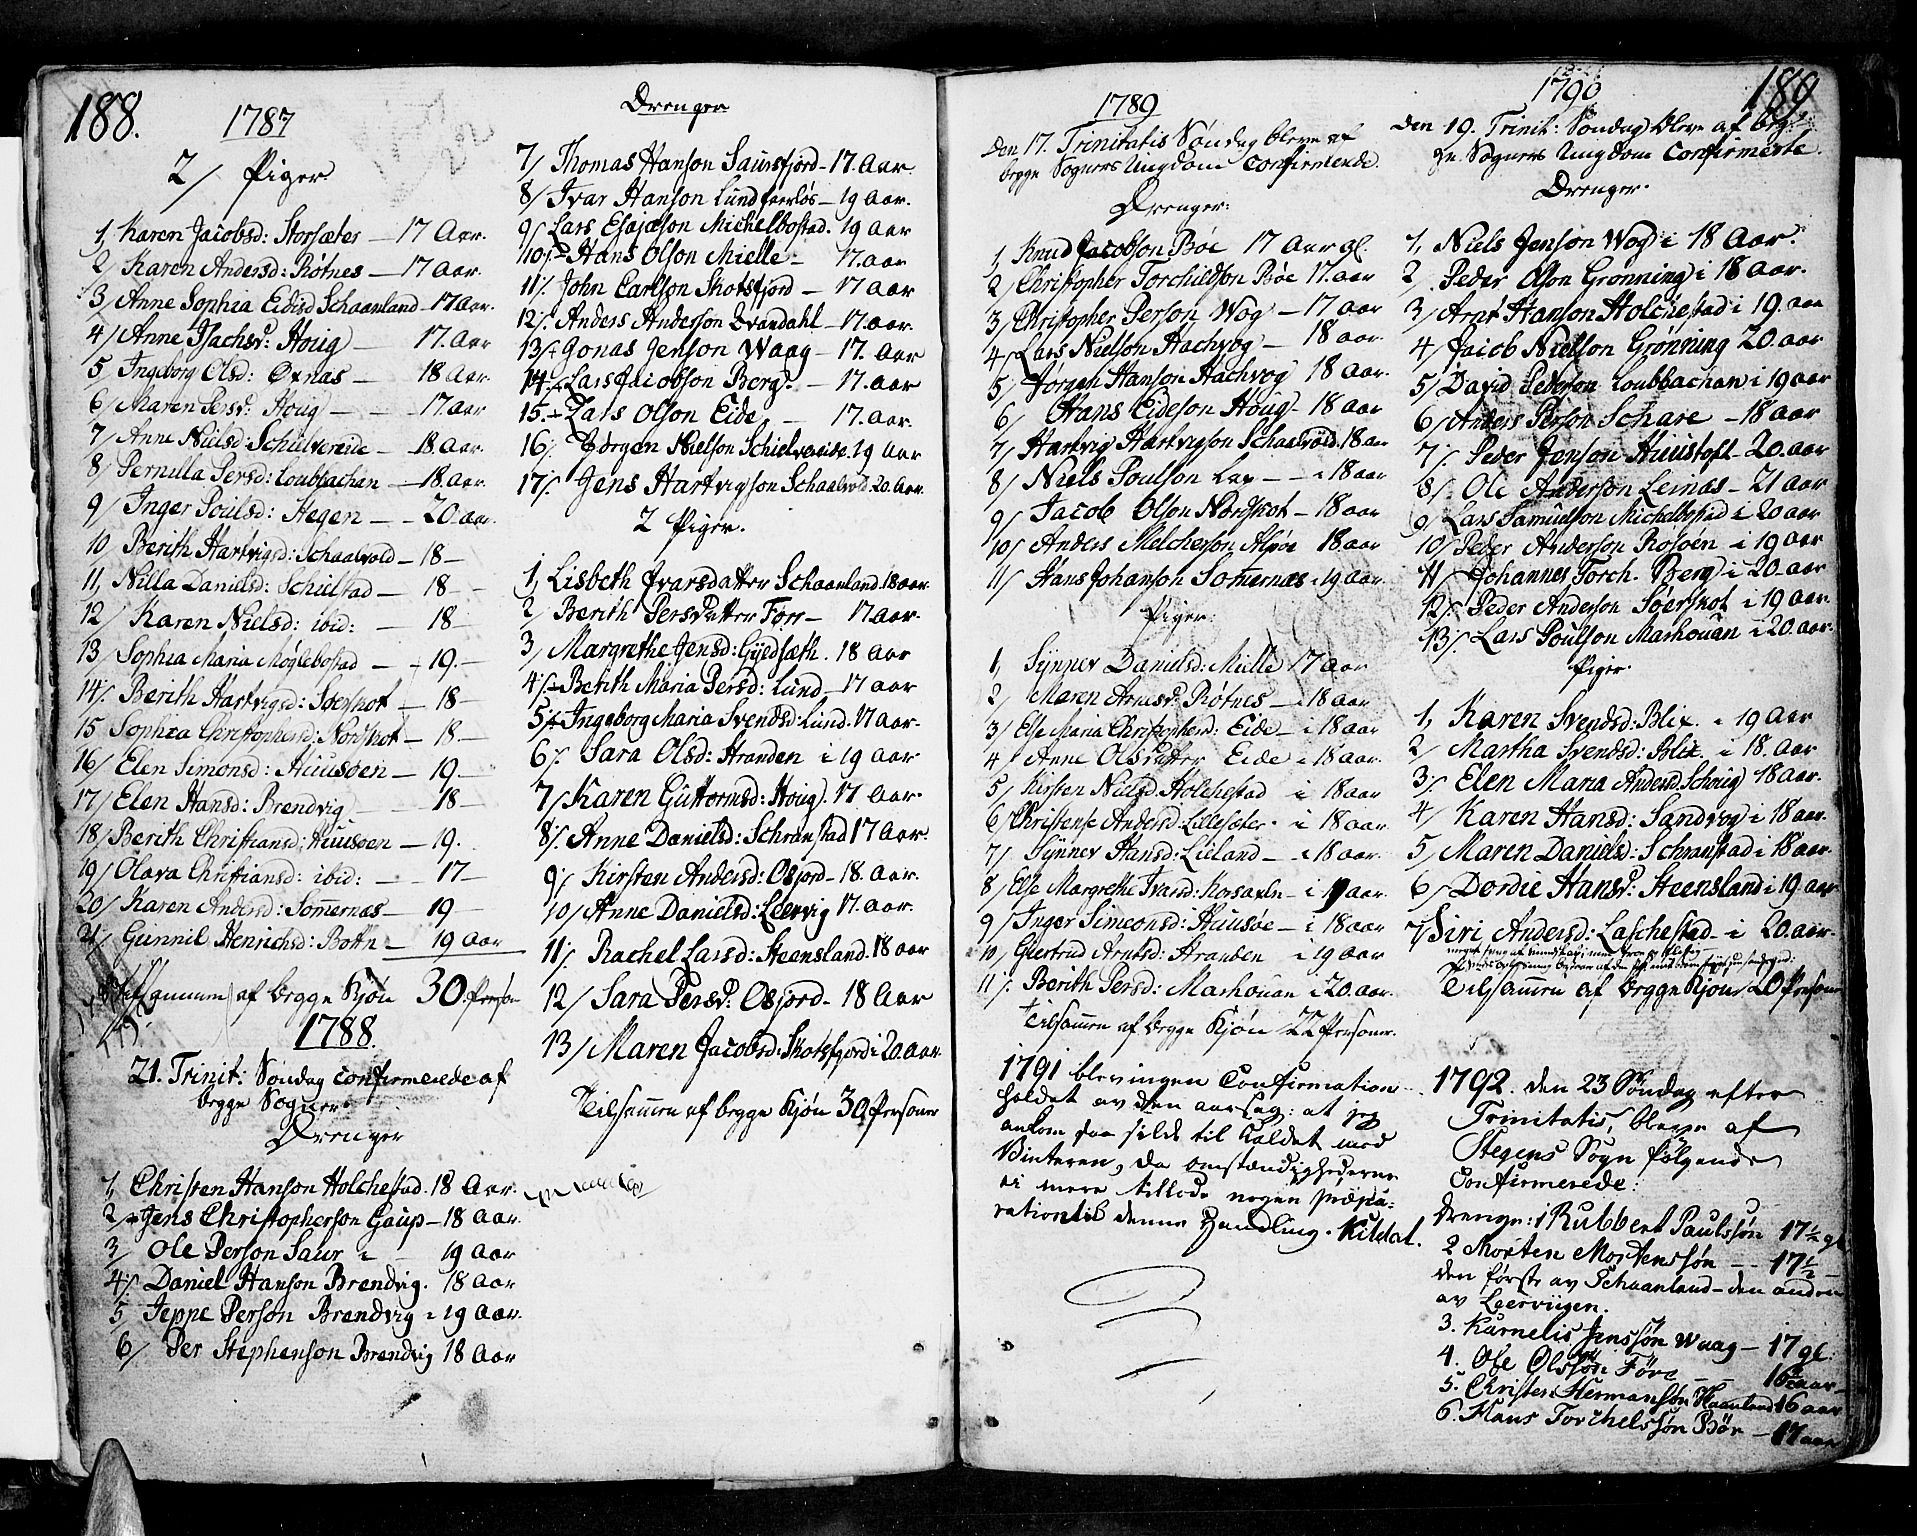 188.
1787
2/ Piger
1, Karen Jacobsd: Storsæter — 17 Aar.
2/ Karen Andersd: Røtnes — 17 aar.
3/ Anne Sophia Eidisd Schaanland - 17 Aar.
4/ Anne Isachsd: Houg — 17. Aar
5/ Ingeborg Olsd: Oxnas — 18 Aar.
6/ Maren Persd: Houg — 17 aar
7/ Anne Nielsd: Schielvereide — 18. Aar.
8/ Pernilla Persd: Loubbachan — 18. aar.
9/ Inger Poulsd: Hegen — 20 aar.
10 Berith Hartvigsd: Schaalvold — 18 —
11, Nilla Danielsd: Schielstad — 18 —
12/ Karen Nielsd: ibid: — 18 —
13/ Sophia Maria Møglebostad — 19. —
14/. Berith Hartvigsd: Søerskot — 18 —
15 Sophia Christophersd: Nordskot — 18. —
16/ Elen Simonsd: Huusøen — 19. —
17/ Elen Hansd: Brendvig — 18 —
18/ Berith Christiansd: Huusøen — 19.
19/ Olava Christiansd: ibid: — 17 —
20/ Karen Andersd: Somernas — 19 —
21/ Gunnil Henrichsd: Botn — 19 aar
af begge Kjøn 30 Person
1788.
21. Trinit: Søndag confirmerede af
begge Sogner
Drenger
1, Christen Hanson Holchestad. 18 Aar.
2/ Jens Christopherson Gaup — 18 Aar.
3/ Ole Person Saur — 19 Aar
4/. Daniel Hanson Brendvig. 18 Aar
5 Jeppe Person Brendvig — 19 aar.
6/ Per Stephenson Brendvig 18 Aar
Drenger
7/ Thomas Hanson Saursfjord — 17. Aar.
8/ Ivar Hanson Lund — 19 aar.
9/ Lars Esajæson Michelbostad. 19 aar
10/. Hans Olson Mielle — 17. aar
11/. John Carlson Skotsfjord — 17 aar
12/. Anders Anderson Evandahl — 17. aar.
13/. Jonas Jenson Waag — 17. aar
14/. Lars Jacobson Berg. — 17. aar
15. Lars Olson Eide — 17. aar.
16/. Jørgen Nielson Schielvereide. 19 aar
17/. Jens Hartvigson Schaalvold 20. aar.
2 Piger.
1, Lisbeth Ivarsdatter Schaanland. 18 aar
2/ Berith Persdatter Forr — 17 aar.
3/ Margrethe Jensd: Gjedsæth. 18 aar
4/. Berith Maria Persd: Lund — 17 aar
5/. Ingeborg Maria Svendsd: Lund. 17 aar.
6/. Sara Olsd: Stranden i 19 aar
7/ Karen Guttormsd: Houg. 17 Aar.
8/. Anne Danielsd: Schranstad 17 Aar.
9/. Kirsten Andersd: Osjord — 18. Aar.
10/ Anne Danielsd: Leervig 17. aar.
11/. Rachel Larsd: Steensland 18 aar
12/ Sara Persd: Osjord — 18 Aar
13/ Maren Jacobsd: Skotsfjord i 20. aar.
Tilsamen af begge Kjøn 30 Personer
1789
Den 17. Trinitatis Søndag bleve af
begge Sogners Ungdom Confirmerede.
Drenger:
1, Knud Jacobson Bøe 17 Aar gl.
2/ Christopher Torchildson Bøe 17. aar
3/ Christopher Person Wog — 17 aar
4/ Lars Nielson Hachvog — 18 aar.
5/ Jørgen Hanson Hachvog 18 aar.
6/ Hans Eideson Houg — 18 aar
7/ Hartvig Hartvigson Schaalvold. 18 aar
8/ Niels Poulson Løv — 18 aar
9/ Jacob Olson Nordskot — 18 aar
10/ Anders Melcherson Alpøe 18 aar
11/ Hans Johanson Somernas i 19 aar.
Piger:
1, Synnev Danielsd: Mielle 17 aar
2/ Maren Arensd: Røtnes — 18 aar.
3/ Else Maria Christophersd: Eide — i 18 aar
4/ Anne Olsdatter Eide i 18 aar.
5/ Kirsten Nielsd Holchestad i 18 aar
6/ Christense Andersd: Lillesæter. i 18 aar
7/ Synnev Hansd: Lieland — i 18 aar.
8/ Else Margrethe Ivarsd: Korsaxeln — i 19 aar.
9/ Inger Simeonsd: Huusøe — i 18 aar
10/ Giertrud Arntsd: Stranden i 19 aar
11/. Berith Persd: Marhouan i 20. aar.
Tilsamen af begge Kjøn 22 Personer.
1791 blev ingen Confirmation
holdet av den aarsag: at jeg
ankom saa silde til Kaldet mod
Vinteren, da omstændighederne
ei mere tillode nogen præpa-
ration til denne Handling. Kildal.
189
1790
Den 19. Trinit: Søndag bleve af beg-
ge Sogners Ungdom Confirmerte.
Drenger.
1, Niels Jenson Wog i 18 Aar.
2, Peder Olson Grønning i 18 aar.
3/ Arnt Hanson Holchestad i 19. aar
4/ Jacob Nielson Grønning 20. aar
5/ David Pederson Loubbachan i 19 aar
6/ Anders Person Schare — 18 aar
7/. Peder Jenson Huustoft 20. aar
8/. Ole Anderson Leinas — 21 aar
9/ Lars Samuelson Michelbostad i 20 aar
10/ Peder Anderson Rosøen — i 19 aar
11/ Johannes Torch. Berg i 20. aar
12/. Peder Anderson Søerskot i 19 aar.
13/. Lars Poulson Marhouan i 20. aar.
Piger.
1, Karen Svendsd: Blix. i 19 Aar
2/ Martha Svendsd: Blix. i 18. Aar
3/. Elen Maria Andersd. Schoug 18 aar.
4/ Karen Hansd: Sandvog i 18 aar.
5/ Maren Danielsd: Schranstad i 18 aar
6/ Dordie Hansd: Steensland i 19 aar
7/ Siri Andersd: Laschestad — i 20. aar.
Tilsamen af begge Kjøn 20 Personer
1792. den 23 Søndag efter
Trinitatis, bleve af
Stegens Sogn følgende
Confirmerede:
Drenge: 1 Rubbert Paulssøn 17½ gl
2 Morten Mortenssøn — 17½ —
den første av Schaanland — den anden
av Leerviigen.
3. Kornelis Jenssøn Waag — 17 gl:
4. Ole Olssøn Føre — 16½ aar —
5. Christen Hermanssøn Skaanland 16 aar
6. Hans Torchelssøn Bøe — 17 aar